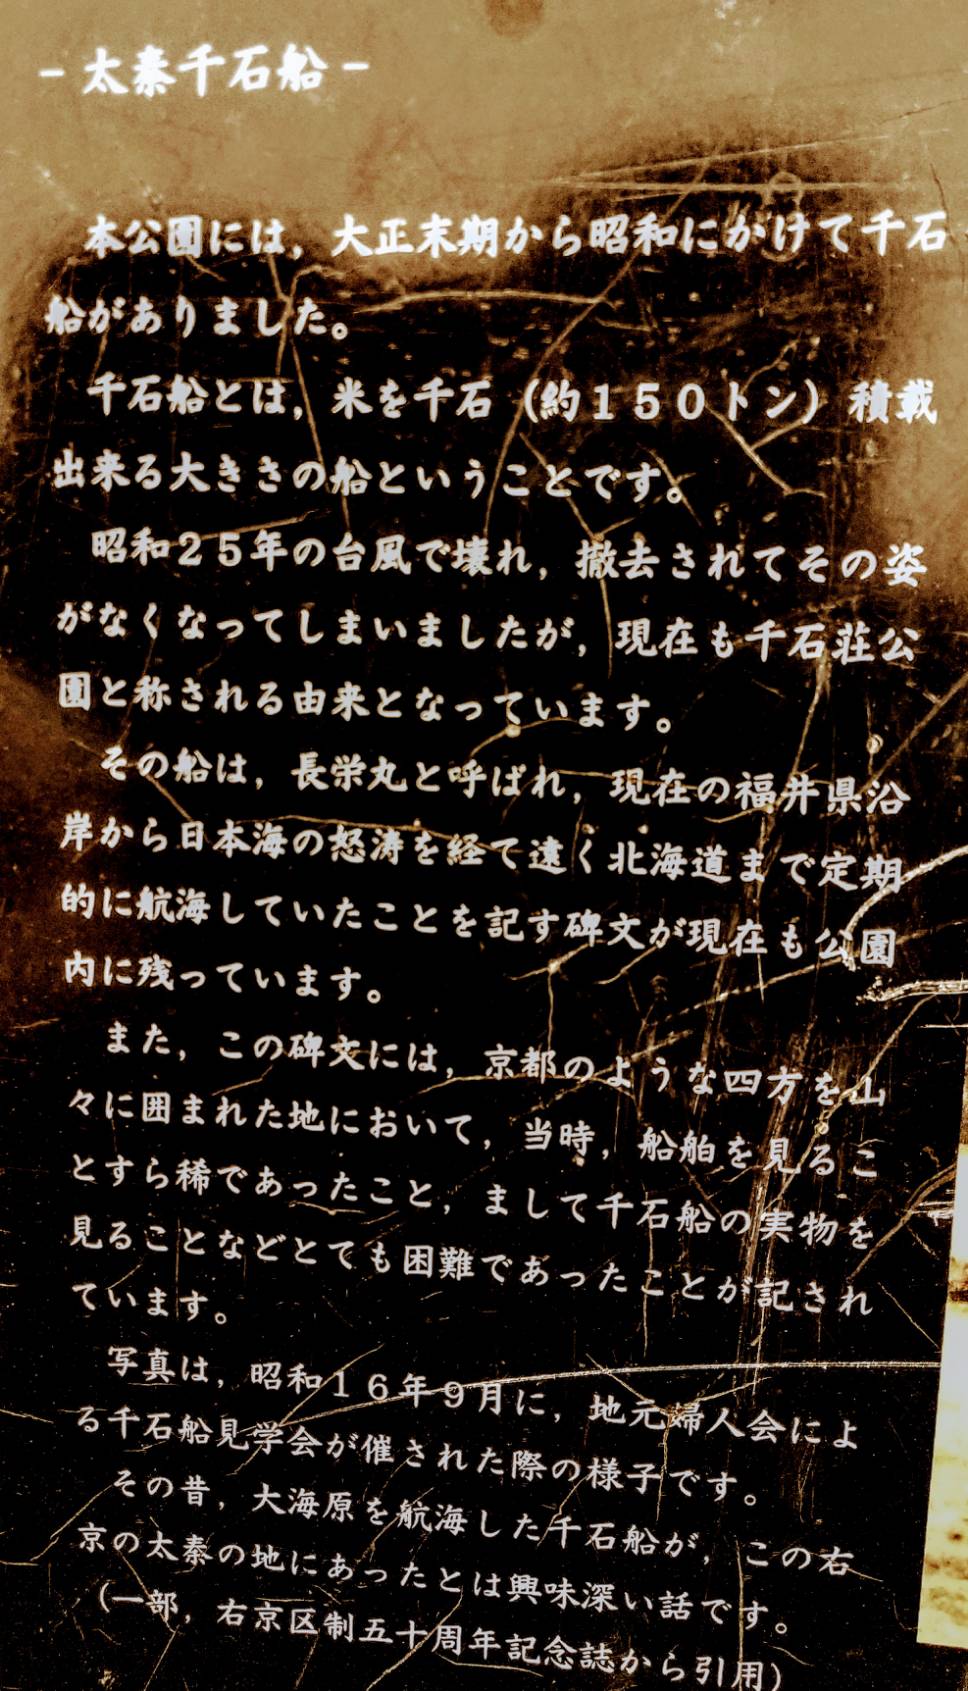 －太秦千石船－
本公園には，大正末期から昭和にかけて千石
船がありました。
千石船とは，米を千石（約１５０トン）積載
出来る大きさの船ということです。
昭和２５年の台風で壊れ，撤去されてその姿
がなくなってしまいましたが，現在も千石荘公
園と称される由来となっています。
その船は，長栄丸と呼ばれ，現在の福井県沿
岸から日本海の怒涛を経て遠く北海道まで定期
的に航海していたことを記す碑文が現在も公園
内に残っています。
また，この碑文には，京都のような四方を山
々に囲まれた地において，当時，船舶を見るこ
とすら稀であったこと，まして千石船の実物を
見ることなどとても困難であったことが記され
ています。
写真は，昭和１６年９月に，地元婦人会によ
る千石船見学会が催された際の様子です。
その昔，大海原を航海した千石船が，この右
京の太秦の地にあったとは興味深い話です。
（一部，右京区制五十周年記念誌から引用）